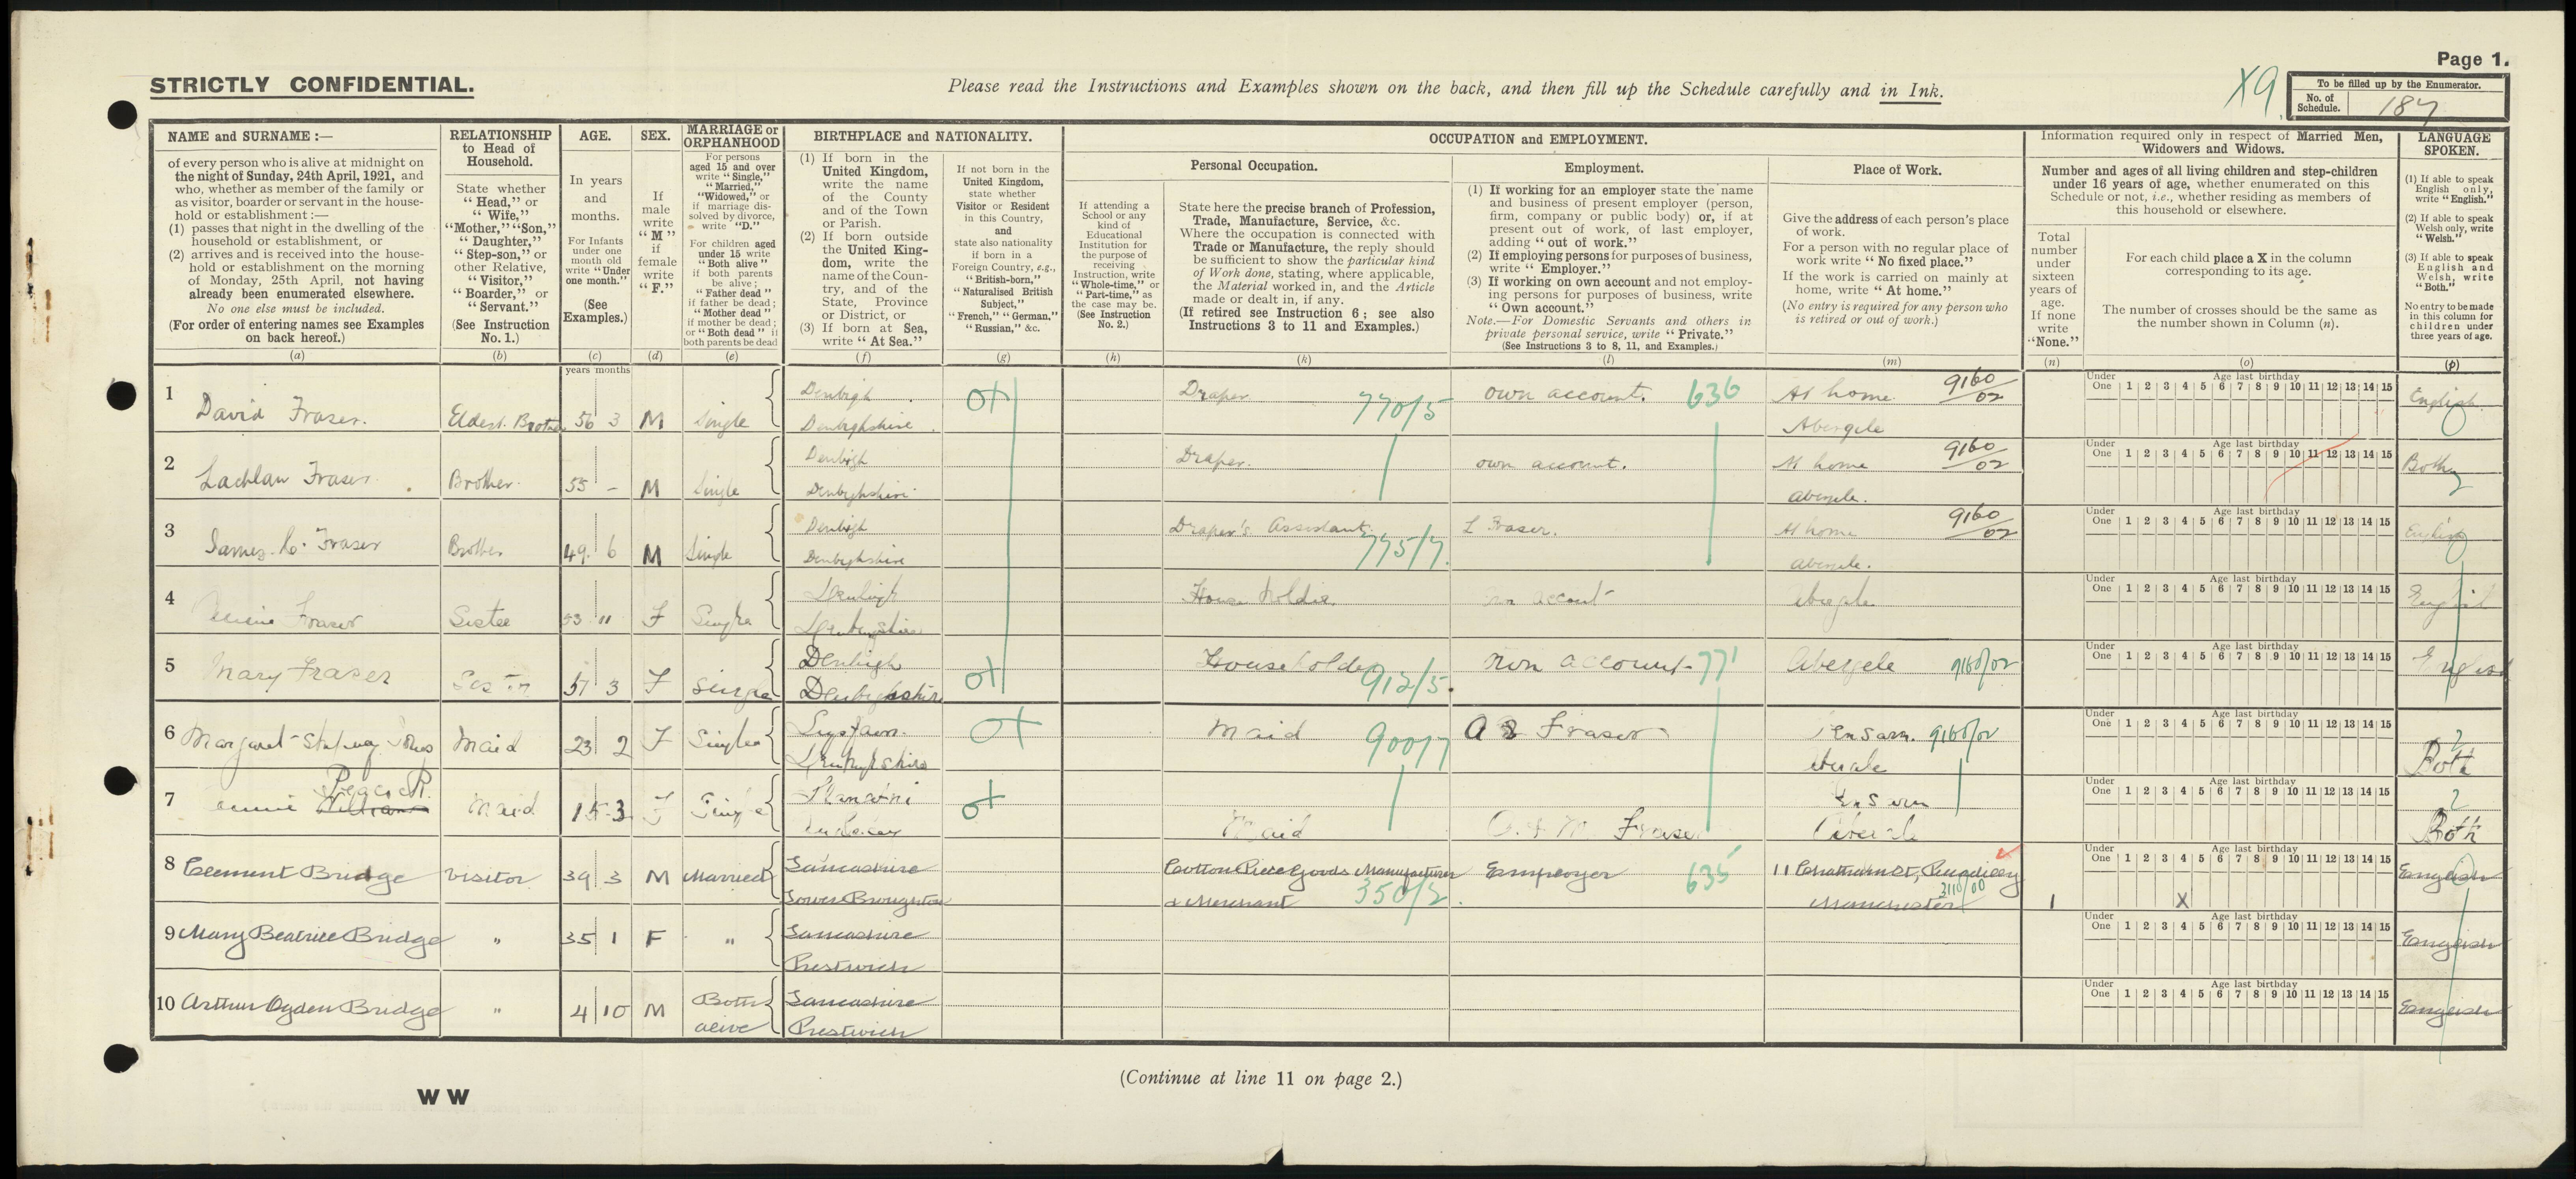 Page 1.
STRICTLY CONFIDENTIAL.
Please read the Instructions and Examples shown on the back, and then fill up the Schedule carefully and in Ink.
X9
To be filled up by the Enumerator.
No. of Schedule. 187
NAME and SURNAME :—
of every person who is alive at midnight on
the night of Sunday, 24th April, 1921, and
who, whether as member of the family or
as visitor, boarder or servant in the house-
hold or establishment :—
(1) passes that night in the dwelling of the
household or establishment, or
(2) arrives and is received into the house-
hold or establishment on the morning
of Monday, 25th April, not having
already been enumerated elsewhere.
No one else must be included.
(For order of entering names see Examples
on back hereof.)
(a)
RELATIONSHIP
to Head of
Household.
State whether
"Head," or
"Wife,"
"Mother," "Son,"
"Daughter,"
"Step-son," or
other Relative,
"Visitor,"
"Boarder," or
"Servant."
(See Instruction
No. 1.)
(b)
AGE.
In years
and
months.
For Infants
under one
month old
write "Under
one month."
(See
Examples.)
(c)
SEX.
If
male
write
"M"
if
female
write
"F."
(d)
MARRIAGE or
ORPHANHOOD
For persons
aged 15 and over
write "Single,"
"Married,"
"Widowed," or
if marriage dis-
solved by divorce,
write "D."
For children aged
under 15 write
"Both alive"
if both parents
be alive ;
"Father dead"
if father be dead ;
"Mother dead"
if mother be dead ;
or "Both dead" if
both parents be dead
(e)
BIRTHPLACE and NATIONALITY.
(1) If born in the
United Kingdom,
write the name
of the County
and of the Town
or Parish.
(2) If born outside
the United King-
dom, write the
name of the Coun-
try, and of the
State, Province
or District, or
(3) If born at Sea,
write "At Sea."
(f)
If not born in the
United Kingdom,
state whether
Visitor or Resident
in this Country,
and
state also nationality
if born in a
Foreign Country, e.g.,
"British-born,"
"Naturalised British
Subject,"
"French," "German,"
"Russian," &c.
(g)
OCCUPATION and EMPLOYMENT.
If attending a
School or any
kind of
Educational
Institution for
the purpose of
receiving
Instruction, write
"Whole-time," or
"Part-time," as
the case may be.
(See Instruction
No. 2.)
(h)
Personal Occupation.
State here the precise branch of Profession,
Trade, Manufacture, Service, &c.
Where the occupation is connected with
Trade or Manufacture, the reply should
be sufficient to show the particular kind
of Work done, stating, where applicable,
the Material worked in, and the Article
made or dealt in, if any.
(If retired see Instruction 6 ; see also
Instructions 3 to 11 and Examples.)
(k)
Employment.
(1) If working for an employer state the name
and business of present employer (person,
firm, company or public body) or, if at
present out of work, of last employer,
adding "out of work."
(2) If employing persons for purposes of business,
write "Employer."
(3) If working on own account and not employ-
ing persons for purposes of business, write
"Own account."
Note.—For Domestic Servants and others in
private personal service, write "Private."
(See Instructions 3 to 8, 11, and Examples.)
(l)
Place of Work.
Give the address of each person's place
of work.
For a person with no regular place of
work write "No fixed place."
If the work is carried on mainly at
home, write "At home."
(No entry is required for any person who
is retired or out of work.)
(m)
Information required only in respect of Married Men,
Widowers and Widows.
Number and ages of all living children and step-children
under 16 years of age, whether enumerated on this
Schedule or not, i.e., whether residing as members of
this household or elsewhere.
Total
number
under
sixteen
years of
age.
If none
write
"None."
(n)
For each child place a X in the column
corresponding to its age.
The number of crosses should be the same as
the number shown in Column (n).
(o)
LANGUAGE
SPOKEN.
(1) If able to speak
English only,
write "English."
(2) If able to speak
Welsh only, write
"Welsh."
(3) If able to speak
English and
Welsh, write
"Both."
No entry to be made
in this column for
children under
three years of age.
(p)
years months
1 David Fraser. Eldest Brother 56 3 M Single Denbigh Denbighshire Draper 770/5 own account. 636 At home Abergele 9160/02 English
2 Lachlan Fraser Brother 55 - M Single Denbigh Denbighshire Draper. own account. At home abergele. 9160/02 Both
3 James Fraser Brother 49 6 M Single Denbigh Denbighshire Draper's Assistant 775/7 L Fraser. At home abergele. 9160/02 English
4 Fraser Sister 53 11 F Single Denbigh House holder account Abergele English
5 Mary Fraser Sister 51 3 F Single Denbigh Denbighshire Householder 912/5 own account 771 Abergele 9160/02 English
6 Margaret Jones Maid 23 2 F Single Maid 900/7 Fraser Pensarn. 9160/02 Both
7 Annie Williams Peacock Maid 15 3 F Single Maid Fraser Both
8 Clement Bridge Visitor 39 3 M Married Lancashire Lower Broughton Cotton Piece Goods Manufacturer & Merchant 350/2 Employer 635 11 Chatham St, Piccadilly Manchester 3110/00 1 X English
9 Mary Beatrice Bridge " 35 1 F " Lancashire Prestwich English
10 Arthur Ogden Bridge " 4 10 M Both alive Lancashire Prestwich English
Under One Age last birthday 1 2 3 4 5 6 7 8 9 10 11 12 13 14 15
(Continue at line 11 on page 2.)
W W